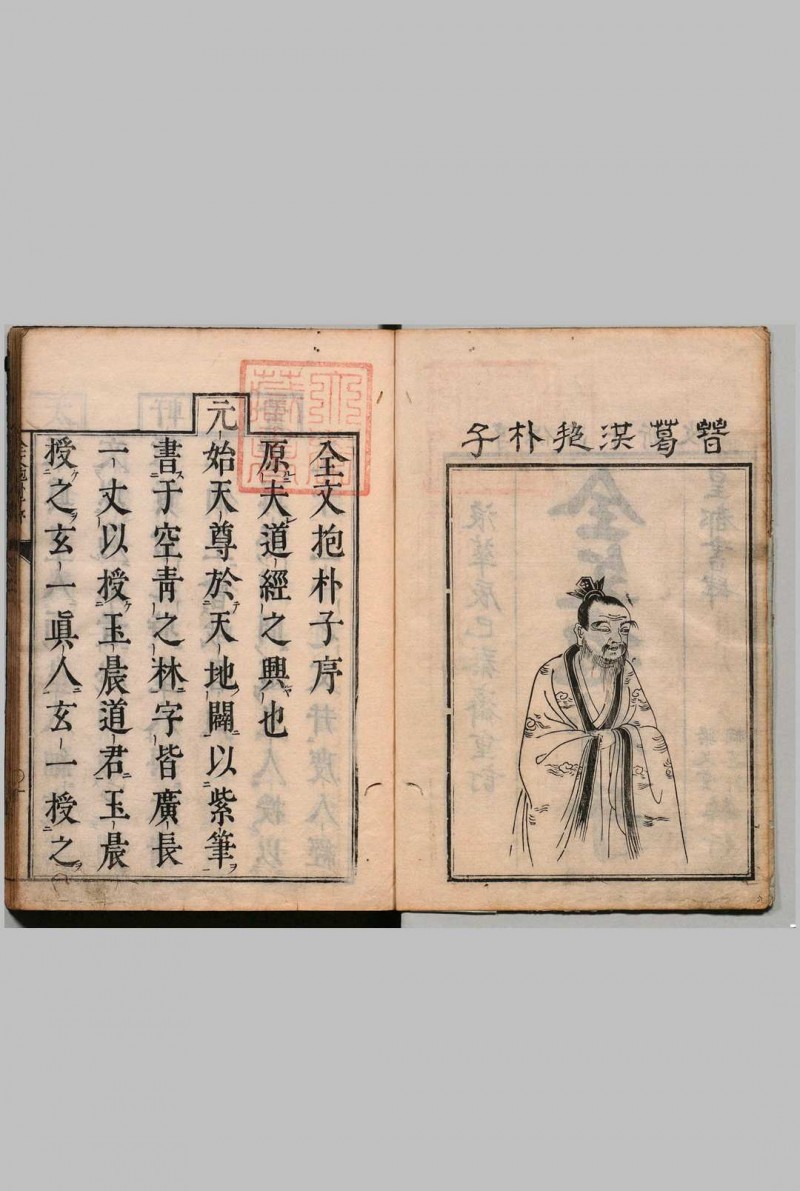 晉葛洪抱朴子
全文抱朴子序
原夫道經之興也
元始天尊於天地闢以紫筆
書于空青之林字皆廣長
一丈以授玉晨道君玉晨
授之玄一眞人玄一授之